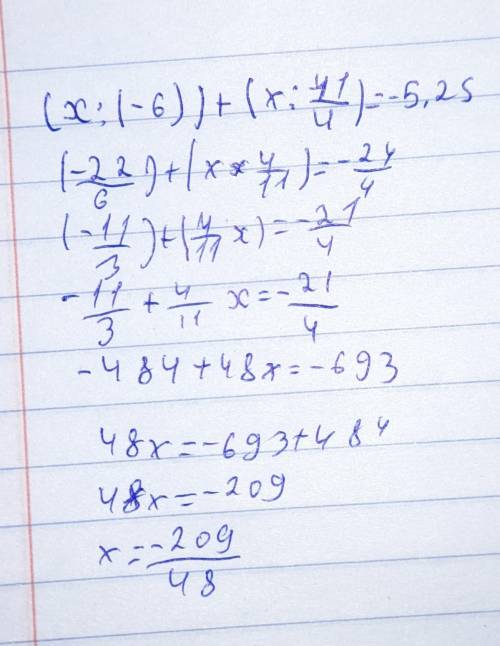 (x:(-6))+(x:41/4)=-5,25
(-22/6)+(x×4/11)=-24/4
(-11/3)+(4/11 x)=-21/4
-11/3+4/11 x=-21/4
-484+48x=-693
48x=-693+484
48x=-209
x=-209/48